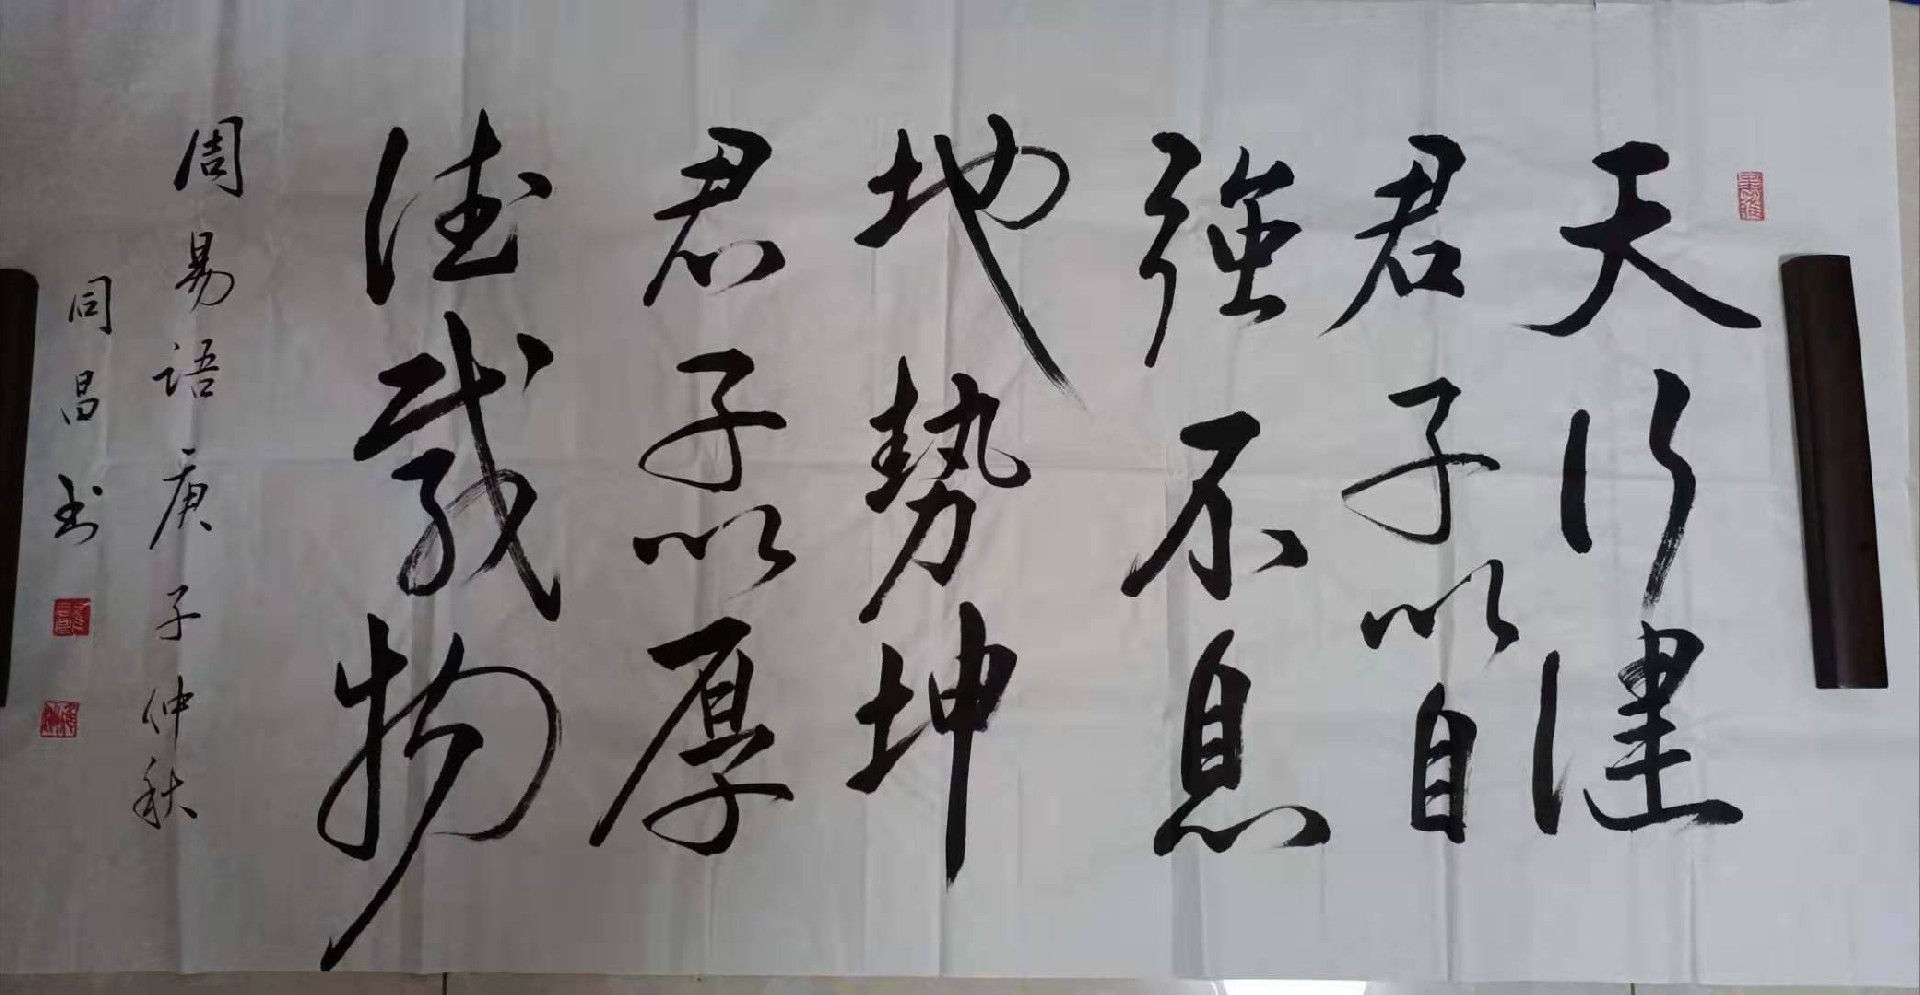 天行健
君子以自
強不息
地勢坤
君子以厚
德載物
周易语庚子仲秋
同昌书